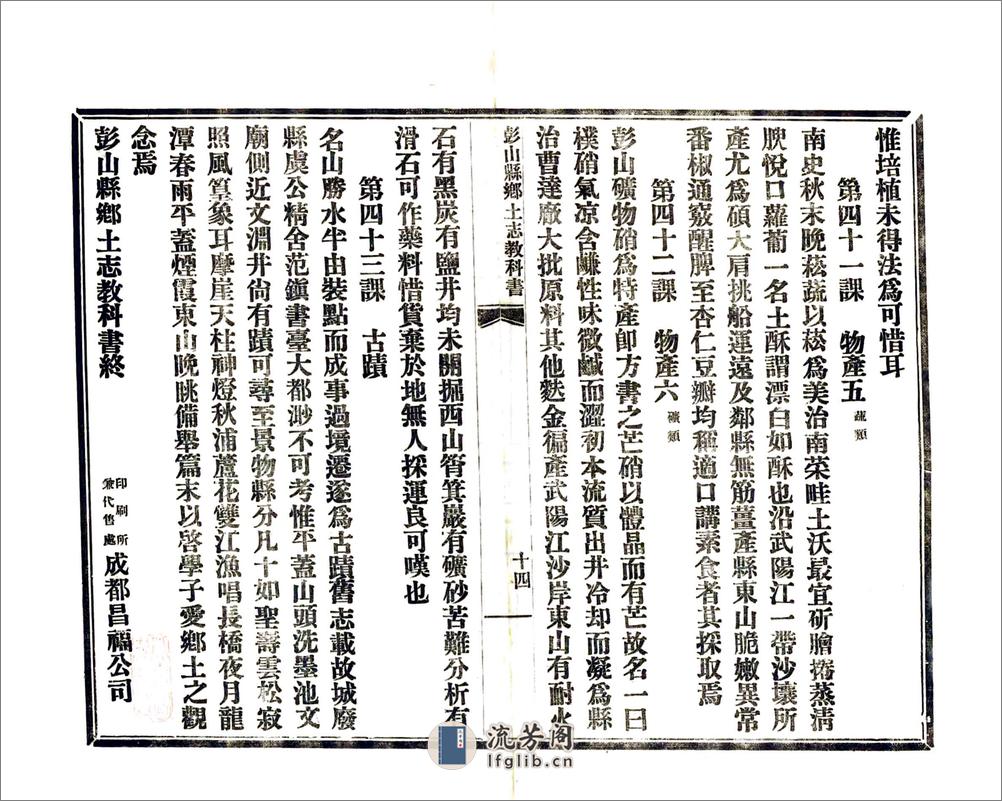 惟培植未得法爲可惜耳
第四十一課　物產五 蔬類
南史秋末晚菘蔬以菘爲美治南荣畦土沃最宜斫膾捲蒸淸
腴悅口蘿蔔一名土酥謂漂白如酥也沿武陽江一帶沙壤所
產尤爲碩大肩挑船運遠及鄰縣無筋薑產縣東山脆嫩異常
番椒通竅醒脾至杏仁豆瓣均稱適口講素食者其採取焉
第四十二課　物產六 礦類
彭山礦物硝爲特產卽方書之芒硝以體晶而有芒故名一曰
樸硝氣凉含鹻性味微鹹而澀初本流質出井冷却而凝爲縣
治曹達廠大批原料其他麩金徧產武陽江沙岸東山有耐火
彭山縣鄉土志教科書
十四
石有黑炭有鹽井均未開掘西山筲箕巖有礦砂苦難分析有
滑石可作藥料惜貨棄於地無人採運良可嘆也
第四十三課　古蹟
名山勝水半由裝點而成事過境遷遂爲古蹟舊志載故城廢
縣虞公精舍范鎭書臺大都渺不可考惟平蓋山頭洗墨池文
廟側近文淵井尙有蹟可尋至景物縣分凡十如聖壽雲松寂
照風篁象耳摩崖天柱神燈秋浦蘆花雙江漁唱長橋夜月龍
潭春雨平蓋煙霞東山晚眺備舉篇末以啓學子愛鄉土之觀
念焉
彭山縣鄉土志教科書終
印刷所
兼代售處
成都昌福公司
流芳阁
lfglib.cn